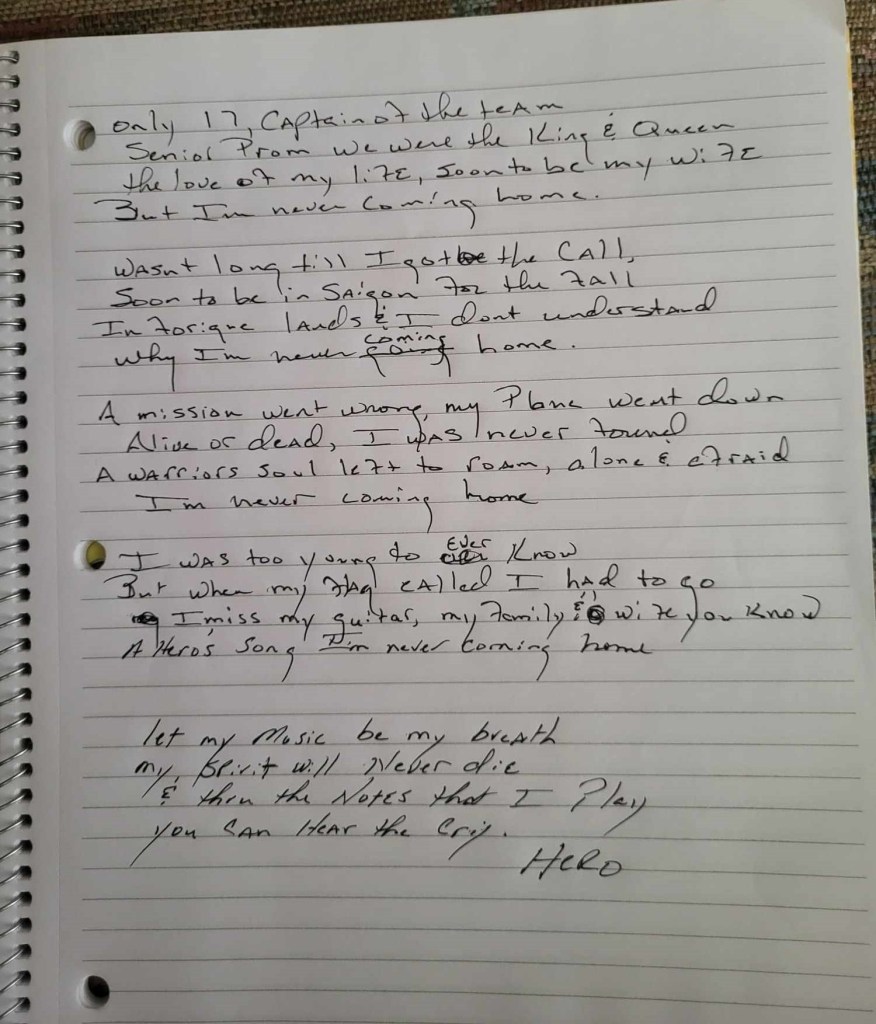 only 17, Captain of the team
Senior Prom we were the King & Queen
the love of my life, soon to be my wife
But Im never coming home.
Wasnt long till I got the CAll,
Soon to be in SAigon for the fall
In forigne lands & I dont understand
why Im never coming home.
A mission went wrong, my Plane went down
Alive or dead, I wAs never found
A wArriors soul left to roam, alone & afraid
Im never coming home
I was too young to EVER Know
But when my flag cAlled I hAd to go
I miss my guitar, my family & wife you know
A Hero's Song I'm never coming home
let my Music be my breath
my Spirit will Never die
& thru the Notes that I Play
you CAn HeAr the Cry.
HERO